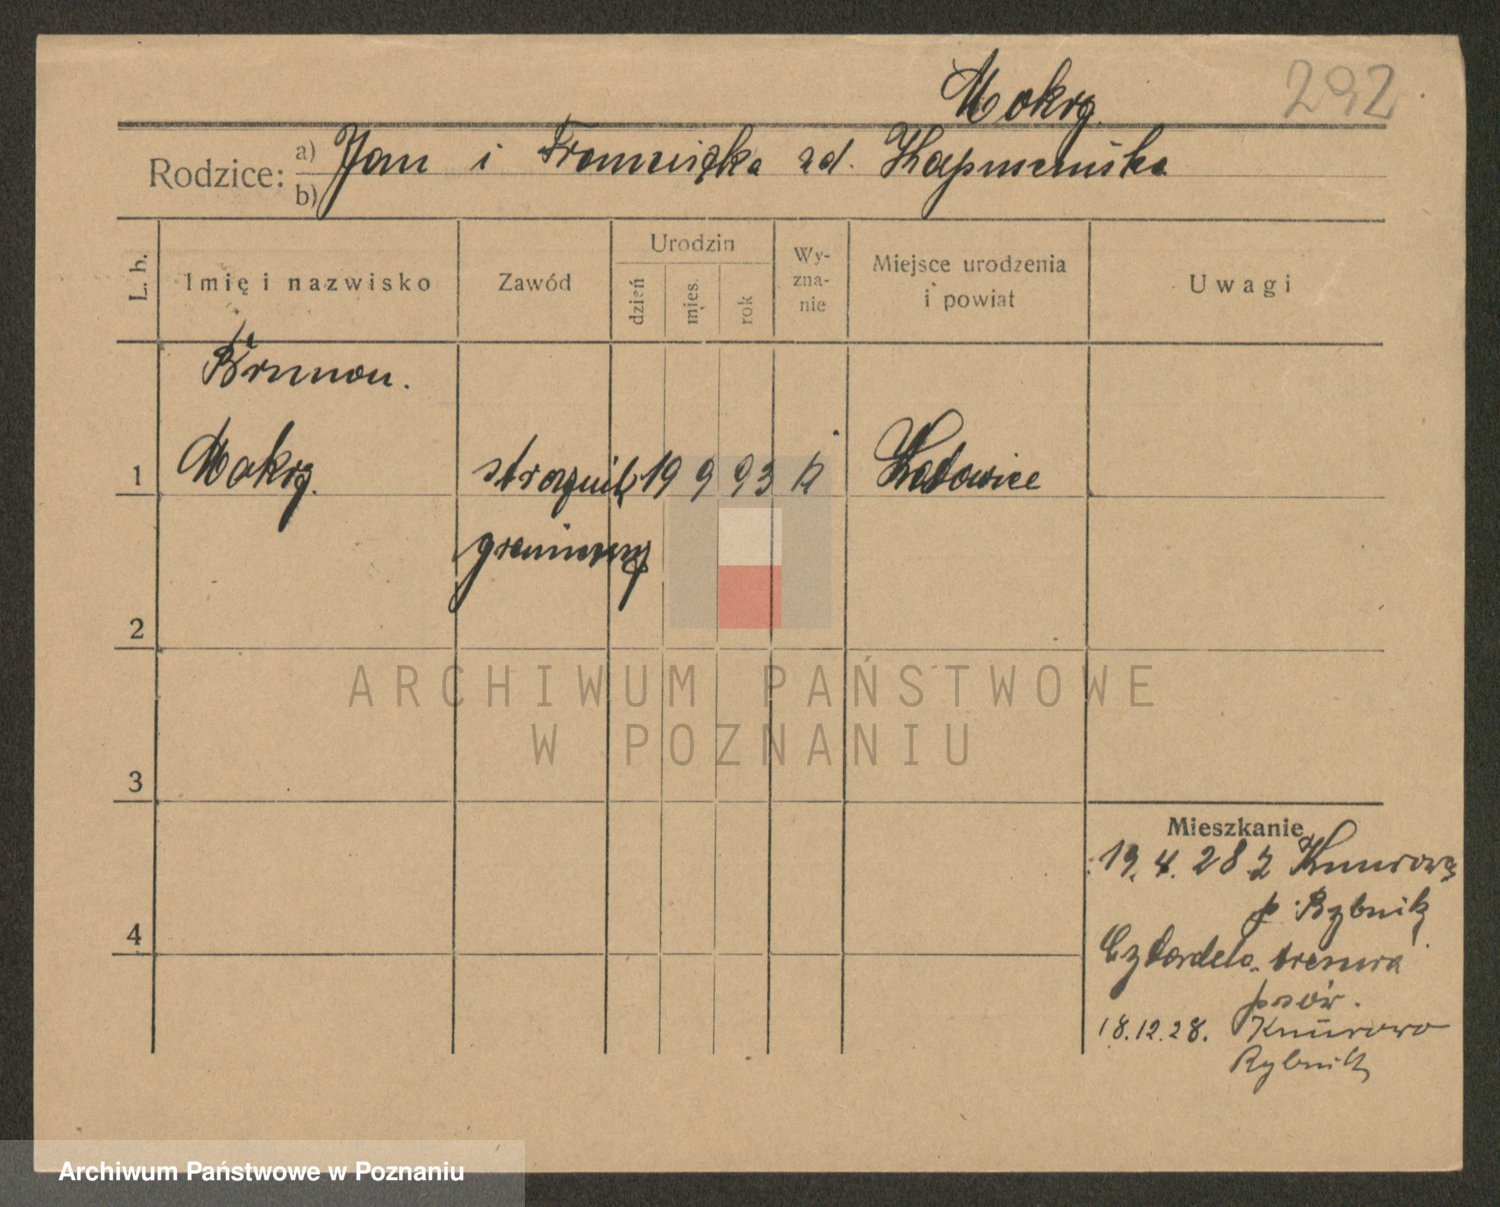 Mokry.
292
Rodzice: a) b) Jan i Franciszka zd.
L. b.
Imię i nazwisko
Zawód
Urodzin
dzień
mies.
rok
Wy-
zna-
nie
Miejsce urodzenia
i powiat
Uwagi
Brunon.
1 Mokry. strażnik 19 9 93 k Katowice
graniczny
2
ARCHIWUM PAŃSTWOWE
W POZNANIU
3
Mieszkanie
19.4.28 z Knurowa
p. Rybnik
Cytadela tresura
psów.
4
18.12.28. Knurowo
Rybnik
Archiwum Państwowe w Poznaniu